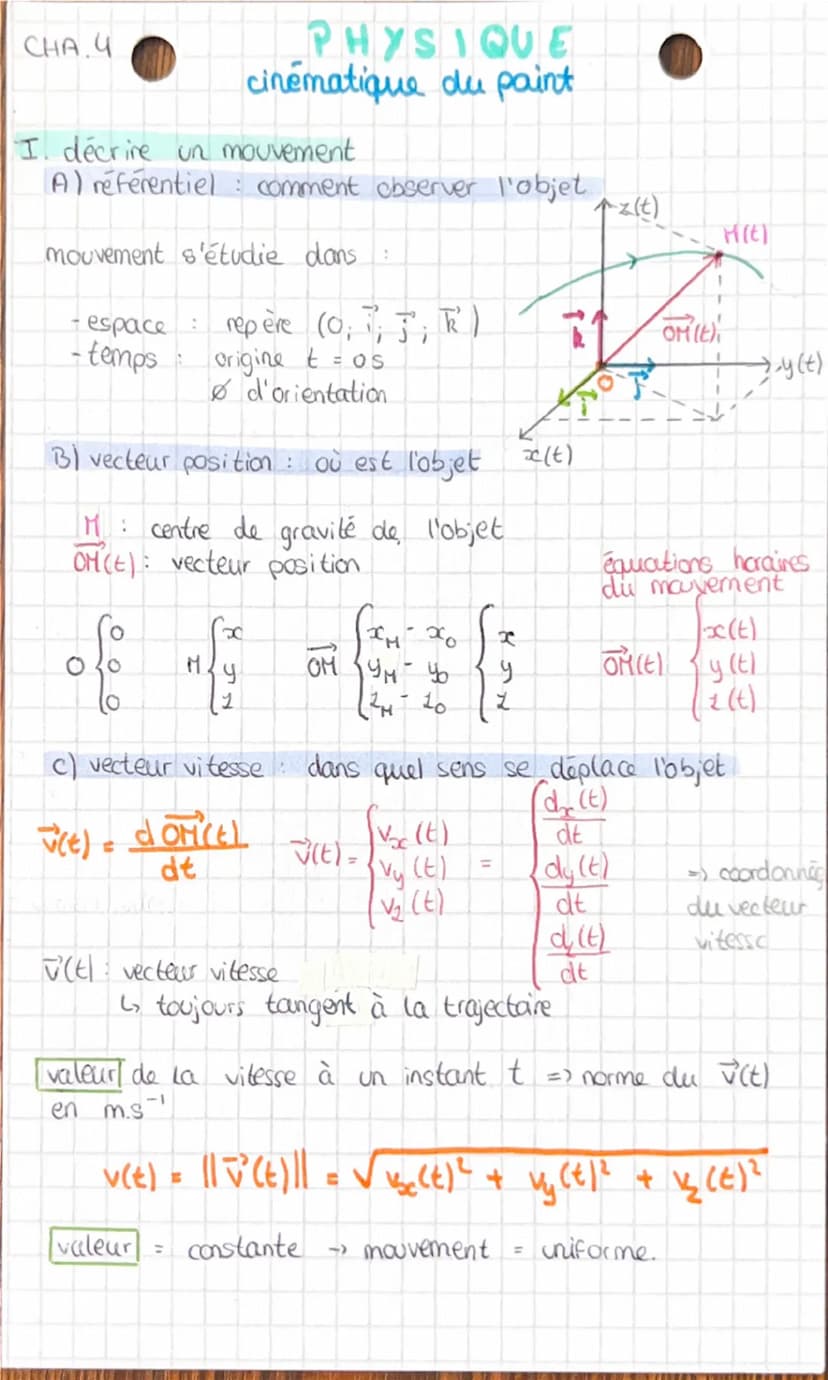 CHA.4
PHYSIQUE
cinématique du point
I. décrire un mouvement
A) référentiel : comment observer l'objet
mouvement s'étudie dans :
- espace : repère (O; i⃗; j⃗; k⃗)
- temps : origine t = 0s
Ø d'orientation
z(t)
M(t)
k⃗
OM⃗(t)
y(t)
O
j⃗
i⃗
x(t)
B) vecteur position : où est l'objet
M : centre de gravité de l'objet
OM⃗(t) : vecteur position
équations horaires
du mouvement
O { 0 0 0   M { x y z   OM⃗ { x_M - x_O  y_M - y_O  z_M - z_O   { x y z   OM⃗(t) { x(t) y(t) z(t)
C) vecteur vitesse : dans quel sens se déplace l'objet
v⃗(t) = dOM⃗(t)/dt   v⃗(t) = { v_x(t) v_y(t) v_z(t) = { d_x(t)/dt  d_y(t)/dt  d_z(t)/dt
=> coordonnées
du vecteur
vitesse
v⃗(t) : vecteur vitesse
↳ toujours tangent à la trajectoire
valeur de la vitesse à un instant t => norme du v⃗(t)
en m.s⁻¹
v(t) = ||v⃗(t)|| = √(v_x(t)² + v_y(t)² + v_z(t)²)
valeur = constante → mouvement = uniforme.